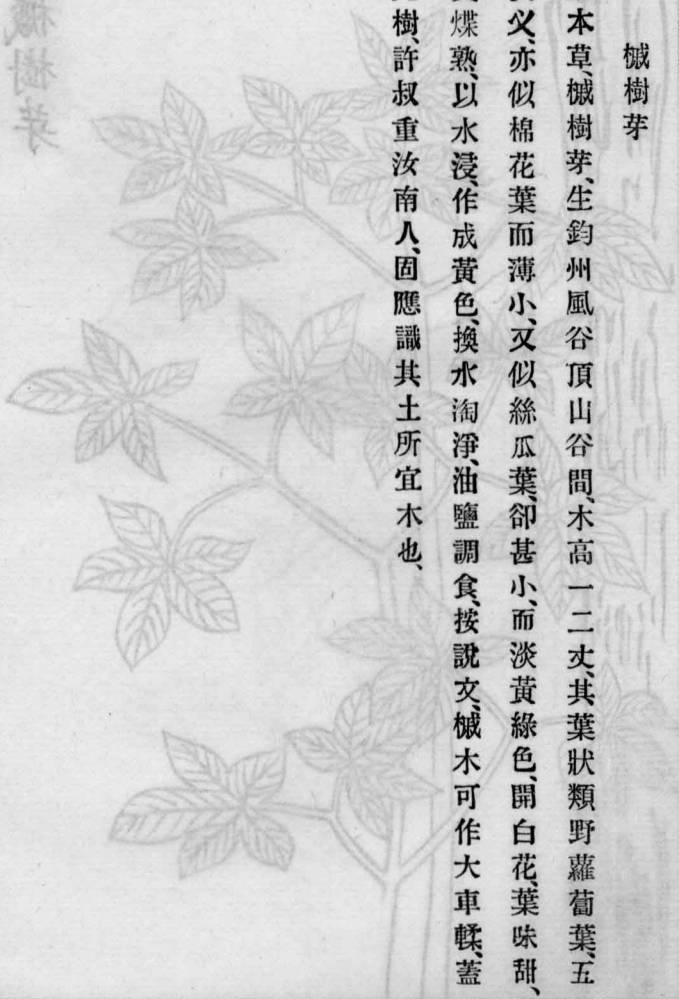 槭樹芽
本草、槭樹芽、生鈞州風谷頂山谷間、木高一二丈、其葉狀類野蘿蔔葉、五
叉、亦似棉花葉而薄小、又似絲瓜葉、卻甚小、而淡黃綠色、開白花、葉味甜、
煠熟、以水浸、作成黃色、換水淘淨、油鹽調食、按說文、槭木可作大車輮、蓋
樹、許叔重汝南人、固應識其土所宜木也、
槭樹芽